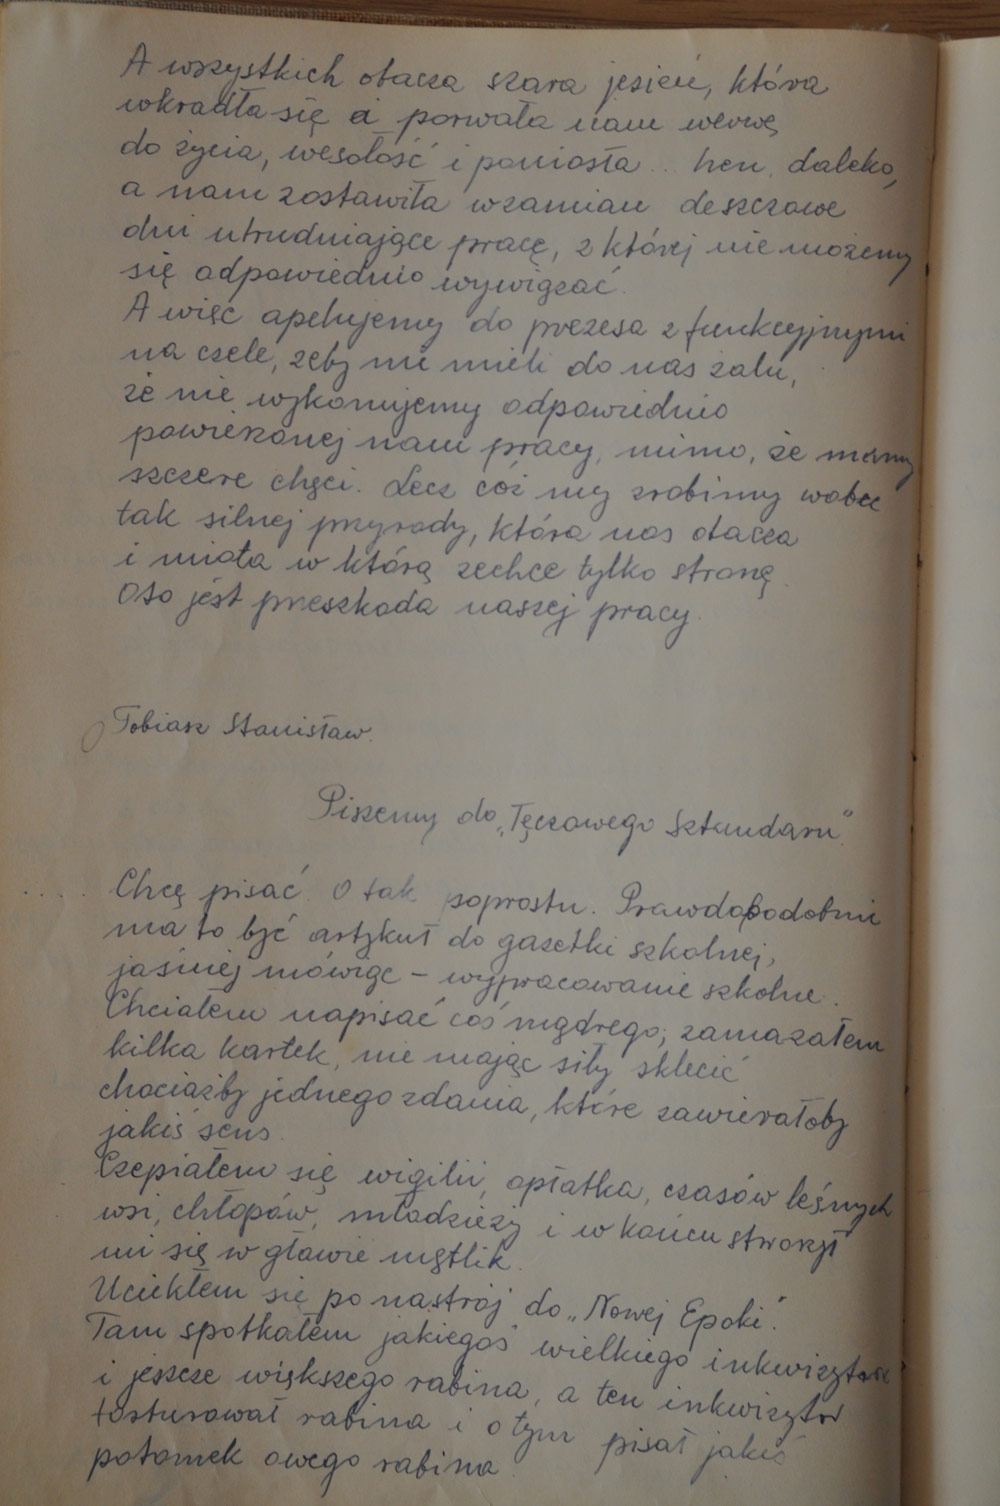 A wszystkich otacza szara jesień, która
wkradła się i porwała nam werwę
do życia, wesołość i poniosła... hen, daleko,
a nam zostawiła wzamian deszczowe
dni utrudniające pracę, z której nie możemy
się odpowiednio wywiązać.
A więc apelujemy do prezesa z funkcyjnymi
na czele, żeby nie mieli do nas żalu,
że nie wykonujemy odpowiednio
powierzonej nam pracy, mimo, że mamy
szczere chęci. Lecz cóż my zrobimy wobec
tak silnej przyrody, która nas otacza
i miota w którą zechce tylko stronę.
Oto jest przeszkoda naszej pracy.
Tobiasz Stanisław.
Piszemy do „Tęczowego Sztandaru".
.... Chcę pisać. O tak poprostu. Prawdopodobnie
ma to być artykuł do gazetki szkolnej,
jaśniej mówiąc – wypracowanie szkolne.
Chciałem napisać coś mądrego, zamazałem
kilka kartek, nie mając siły sklecić
chociażby jednego zdania, które zawierałoby
jakiś sens.
Czepiałem się wigilii, opłatka, czasów leśnych
wsi, chłopów, młodzieży i w końcu stworzył
mi się w głowie mętlik.
Uciekłem się po nastrój do „Nowej Epoki".
Tam spotkałem jakiegoś wielkiego inkwizytora
i jeszcze większego rabina, a ten inkwizytor
torturował rabina i o tym pisał jakiś
potomek owego rabina.